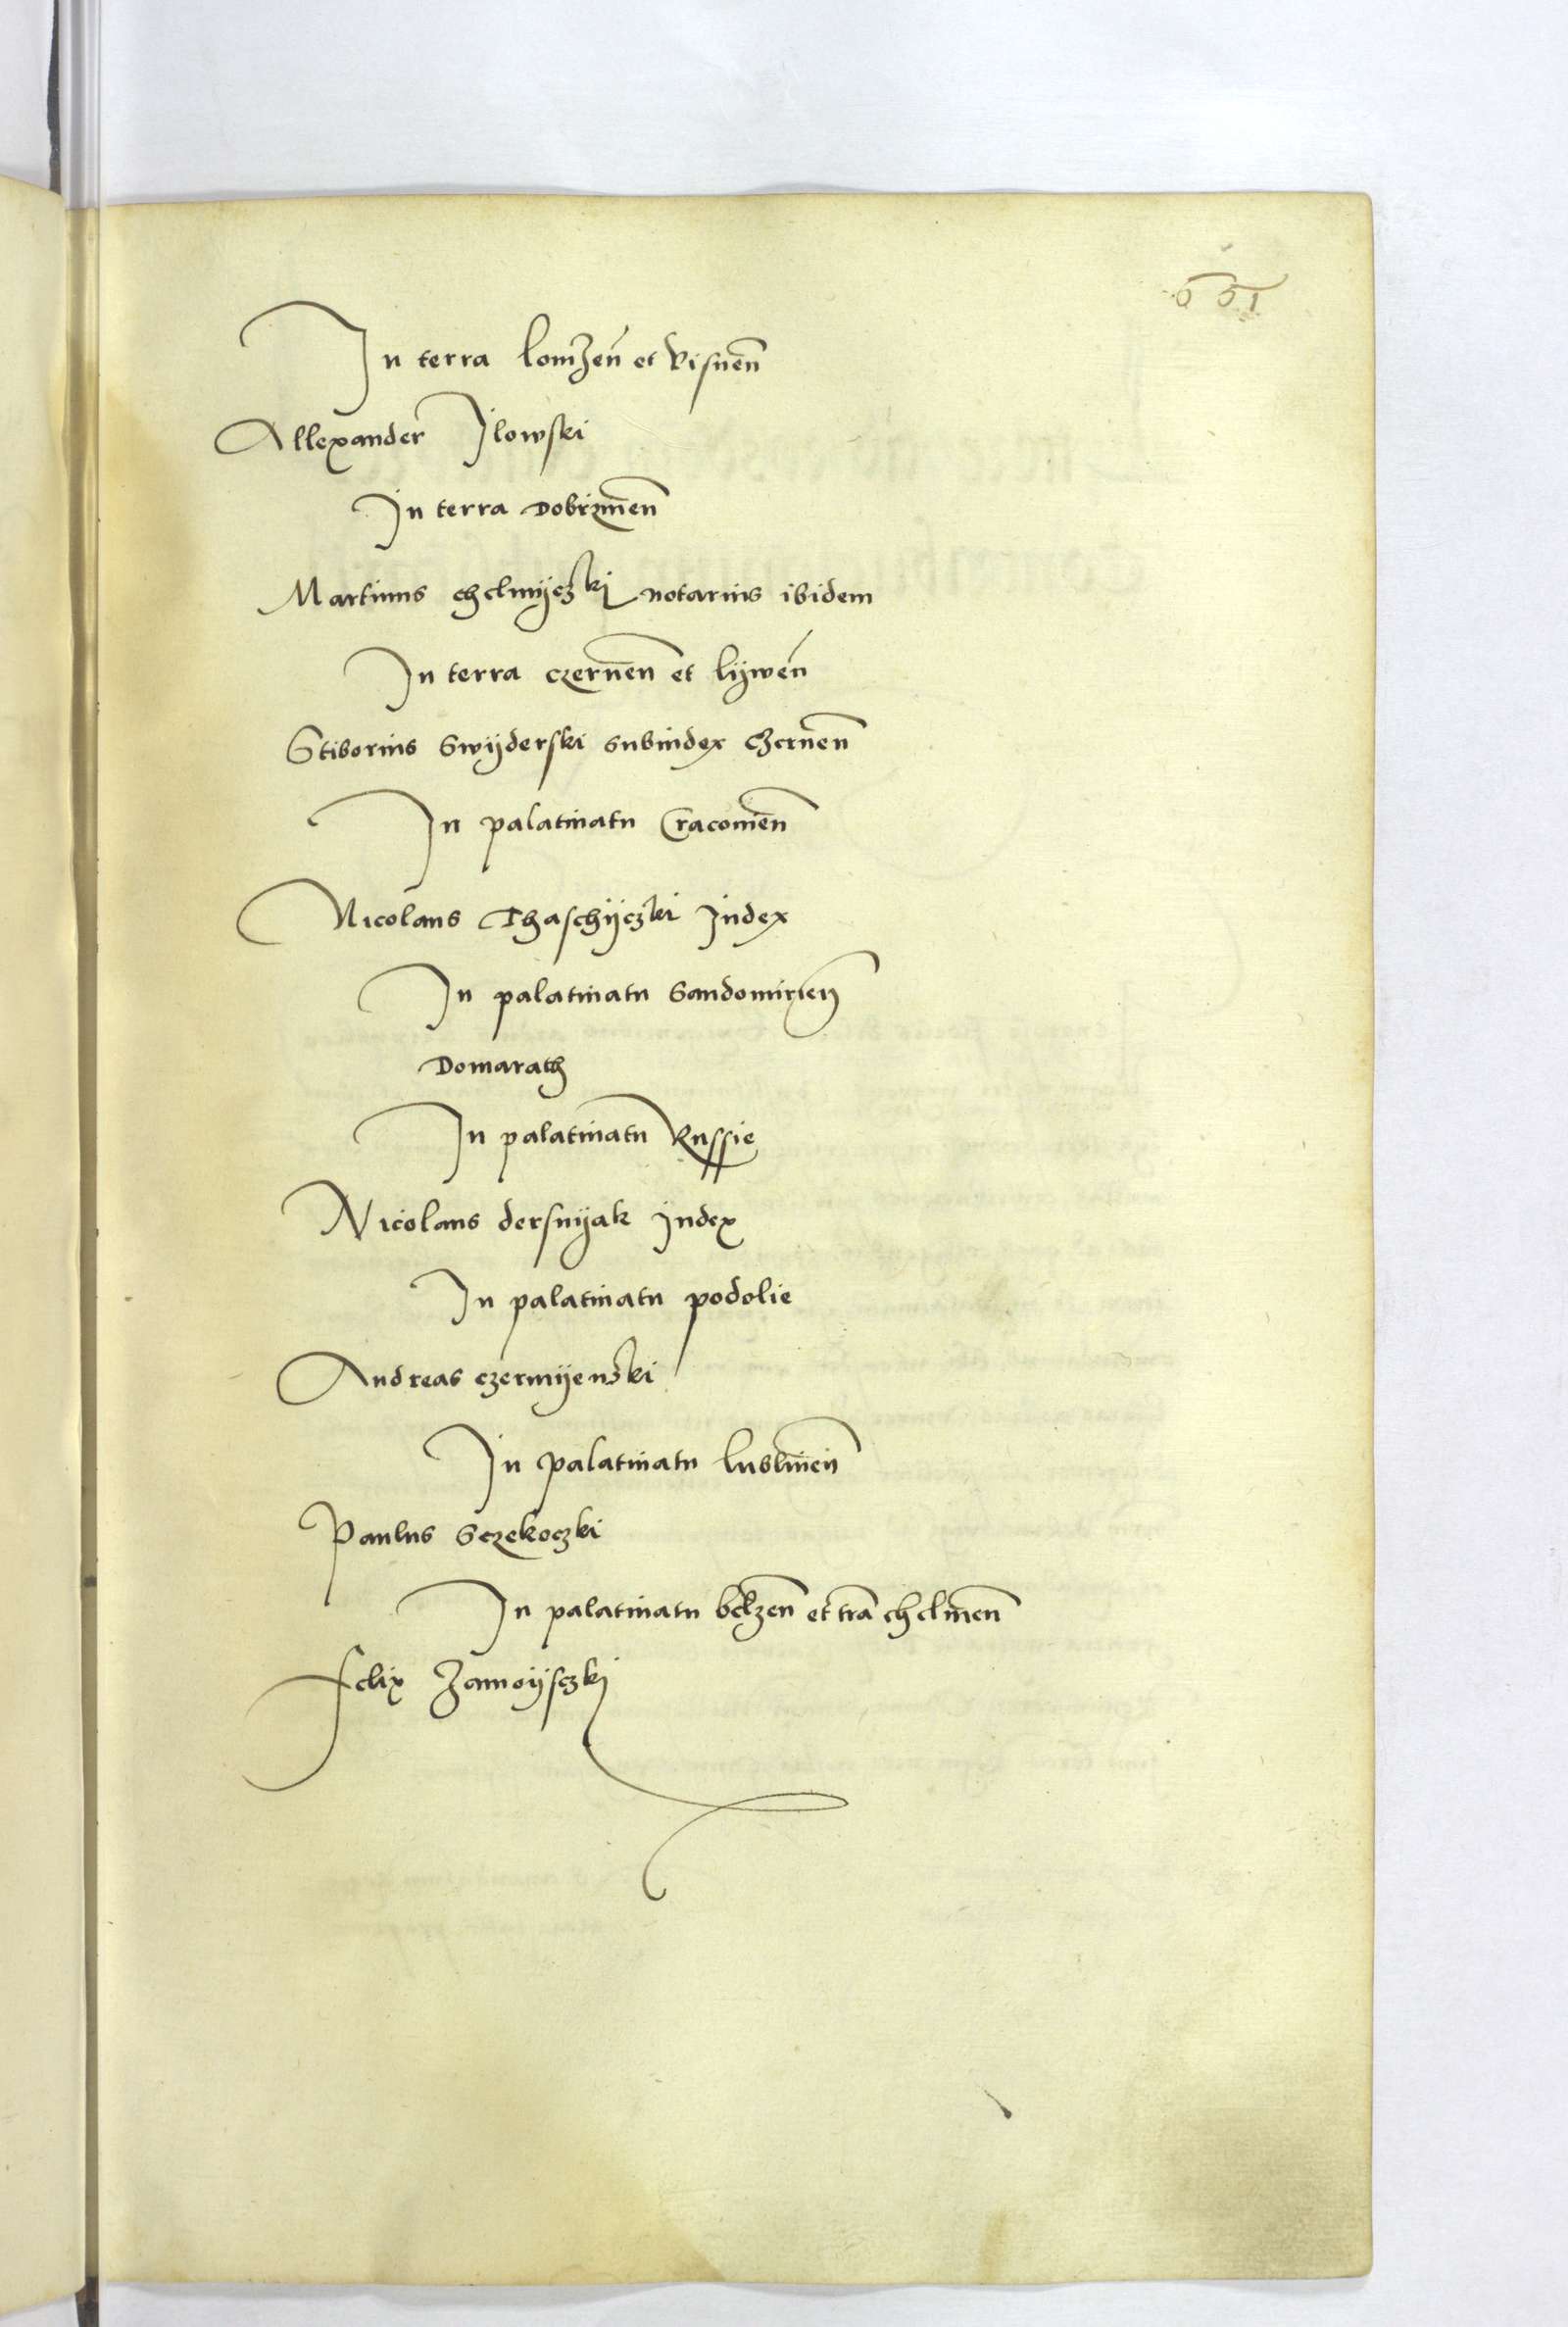 In terra lomzen̄ et Visnen̄
Allexander Jlowski
In terra Dobrzinen̄
Martinus chelmijczki notarius ibidem
In terra czernen̄ et lijwen̄
Stiborius Swijderski subiudex Czernen̄
In palatinatu Cracouien̄
Nicolaus Thaschijczki Judex
In palatinatu Sandomirien̄
Domarath
In palatinatu Russie
Nicolaus dersnijak Judex
In palatinatu podolie
Andreas czermijenski
In palatinatu lublinen̄
Paulus Sczekoczki
In palatinatu belzen̄ et tr̄a chelmen̄
Felix Zamoijsczki